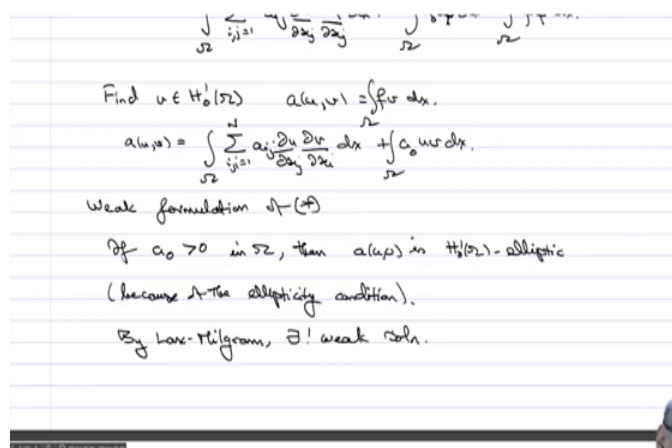 ∫_Ω Σ_{i,j=1} a_ij ∂/∂x_j ∂/∂x_j ∫_Ω ∫_Ω fφ dx.
Find u ∈ H¹₀(Ω) a(u,v) = ∫_Ω fv dx.
a(u,v) = ∫_Ω Σ_{i,j=1}^N a_ij ∂u/∂x_j ∂v/∂x_i dx + ∫_Ω a₀ uv dx.
Weak formulation of (*)
If a₀ > 0 in Ω, then a(u,v) is H¹₀(Ω)-elliptic
(because of the ellipticity condition).
By Lax-Milgram, ∃! weak soln.